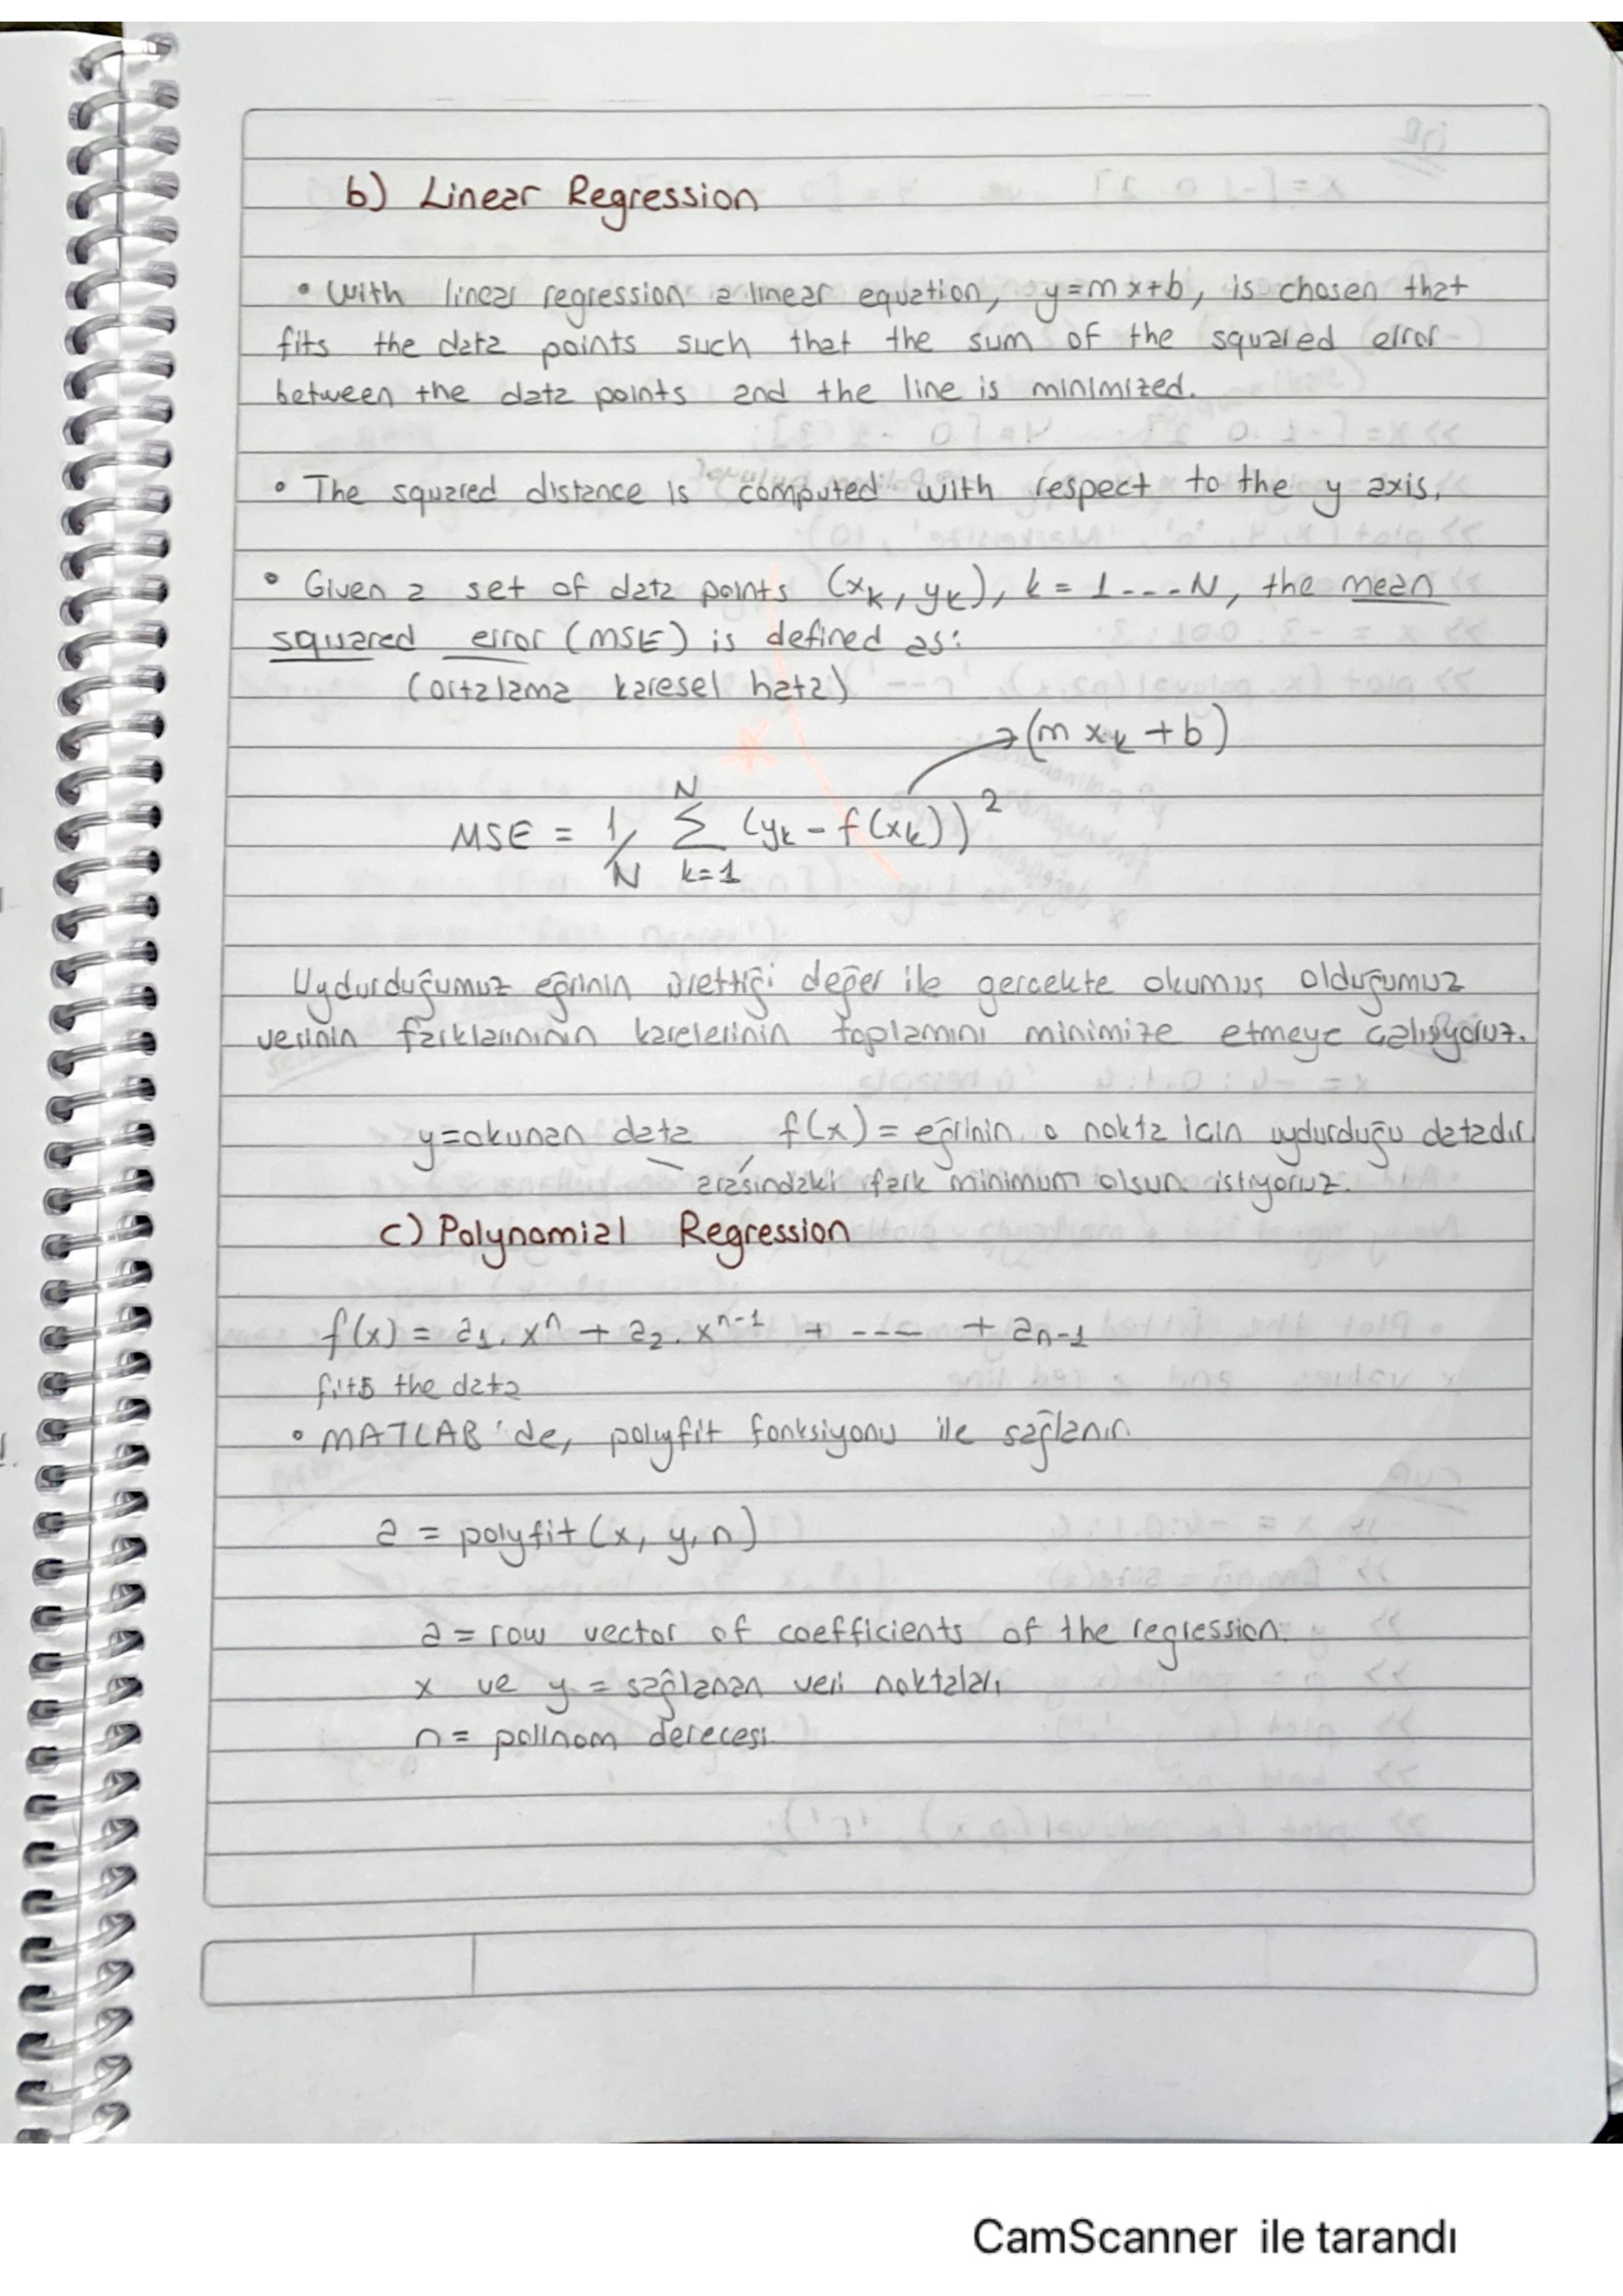 b) Linear Regression
• With linear regression a linear equation, y=mx+b, is chosen that
fits the data points such that the sum of the squared error
between the data points and the line is minimized.
• The squared distance is computed with respect to the y axis.
• Given a set of data points (xk, yk), k = 1 ---- N, the mean
squared error (MSE) is defined as:
(ortalama karesel hata)
→(m xk + b)
MSE = 1/N N∑k=1 (yk - f(xk))²
Uydurduğumuz eğrinin ürettiği değer ile gercekte okumuş olduğumuz
verinin farklarınının karelerinin toplamını minimize etmeye çalışıyoruz.
y=okunan data , f(x) = eğrinin o nokta icin uydurduğu datadır
arasındaki fark minimum olsun istiyoruz.
c) Polynomial Regression
f(x) = a1. xⁿ + a2. xⁿ⁻¹ + ---- + an-1
fits the data
• MATLAB'de, polyfit fonksiyonu ile sağlanır.
a = polyfit(x, y, n)
a = row vector of coefficients of the regression.
x ve y = sağlanan veri noktaları
n = polinom derecesi.
CamScanner ile tarandı